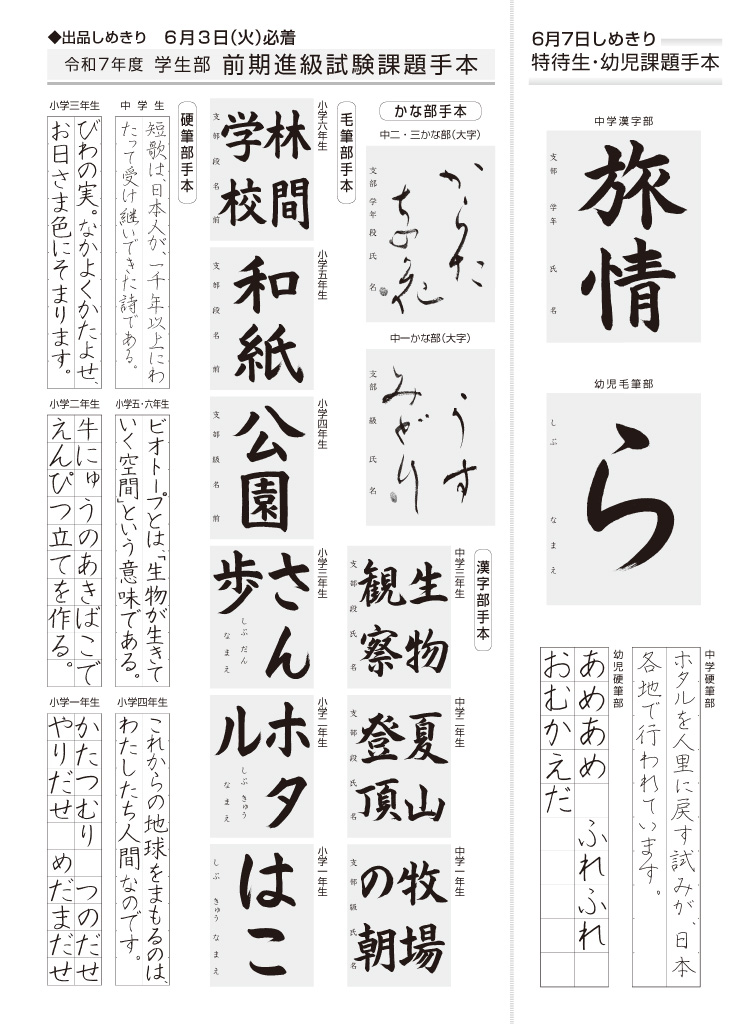 ◆出品しめきり　6月3日(火)必着
令和7年度 学生部 前期進級試験課題手本
硬筆部手本
中学生
短歌は、日本人が、一千年以上にわ
たって受け継いできた詩である。
小学三年生
びわの実。なかよくかたよせ、
お日さま色にそまります。
小学五・六年生
ビオトープとは、「生物が生きて
いく空間」という意味である。
小学二年生
牛にゅうのあきばこで
えんぴつ立てを作る。
小学四年生
これからの地球をまもるのは、
わたしたち人間なのです。
小学一年生
かたつむり　つのだせ
やりだせ　めだまだせ
毛筆部手本
小学六年生
林間
学校
支部　段　名　前
小学五年生
和紙
支部　段　名　前
小学四年生
公園
支部　級　名　前
小学三年生
さん
歩
しぶ　だん
なまえ
小学二年生
ホタ
ル
しぶ　きゅう
なまえ
小学一年生
はこ
しぶ　きゅう　なまえ
かな部手本
中二・三かな部(大字)
からた
ちの花
支部　学年　段　氏　名
中一かな部(大字)
うす
みどり
支部　級　氏　名
漢字部手本
中学三年生
生物
観察
支部　段　氏　名
中学二年生
夏山
登頂
支部　段　氏　名
中学一年生
牧場
の朝
支部　級　氏　名
6月7日しめきり
特待生・幼児課題手本
中学漢字部
旅情
支部　学年　氏　名
幼児毛筆部
ら
しぶ　なまえ
中学硬筆部
ホタルを人里に戻す試みが、日本
各地で行われています。
幼児硬筆部
あめあめ　ふれふれ
おむかえだ